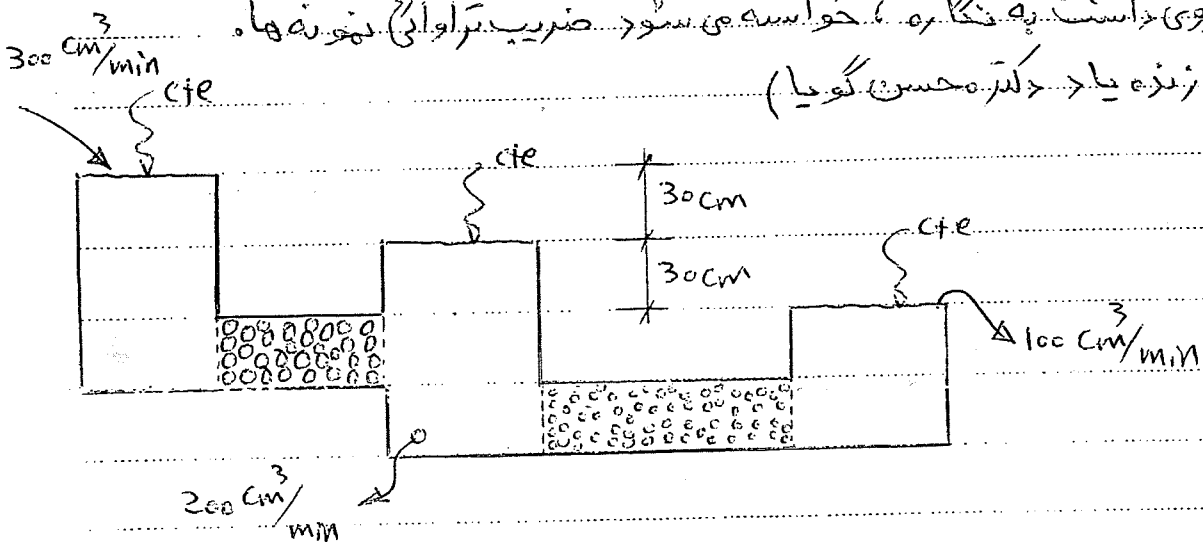 روی داست به نگاره ، خواسته می شود ضریب تراوائی نمونه ها.
زنده یاد دکتر محسن گویا)
300 cm³/min
cte
cte
30 cm
cte
30 cm
100 cm³/min
200 cm³/min